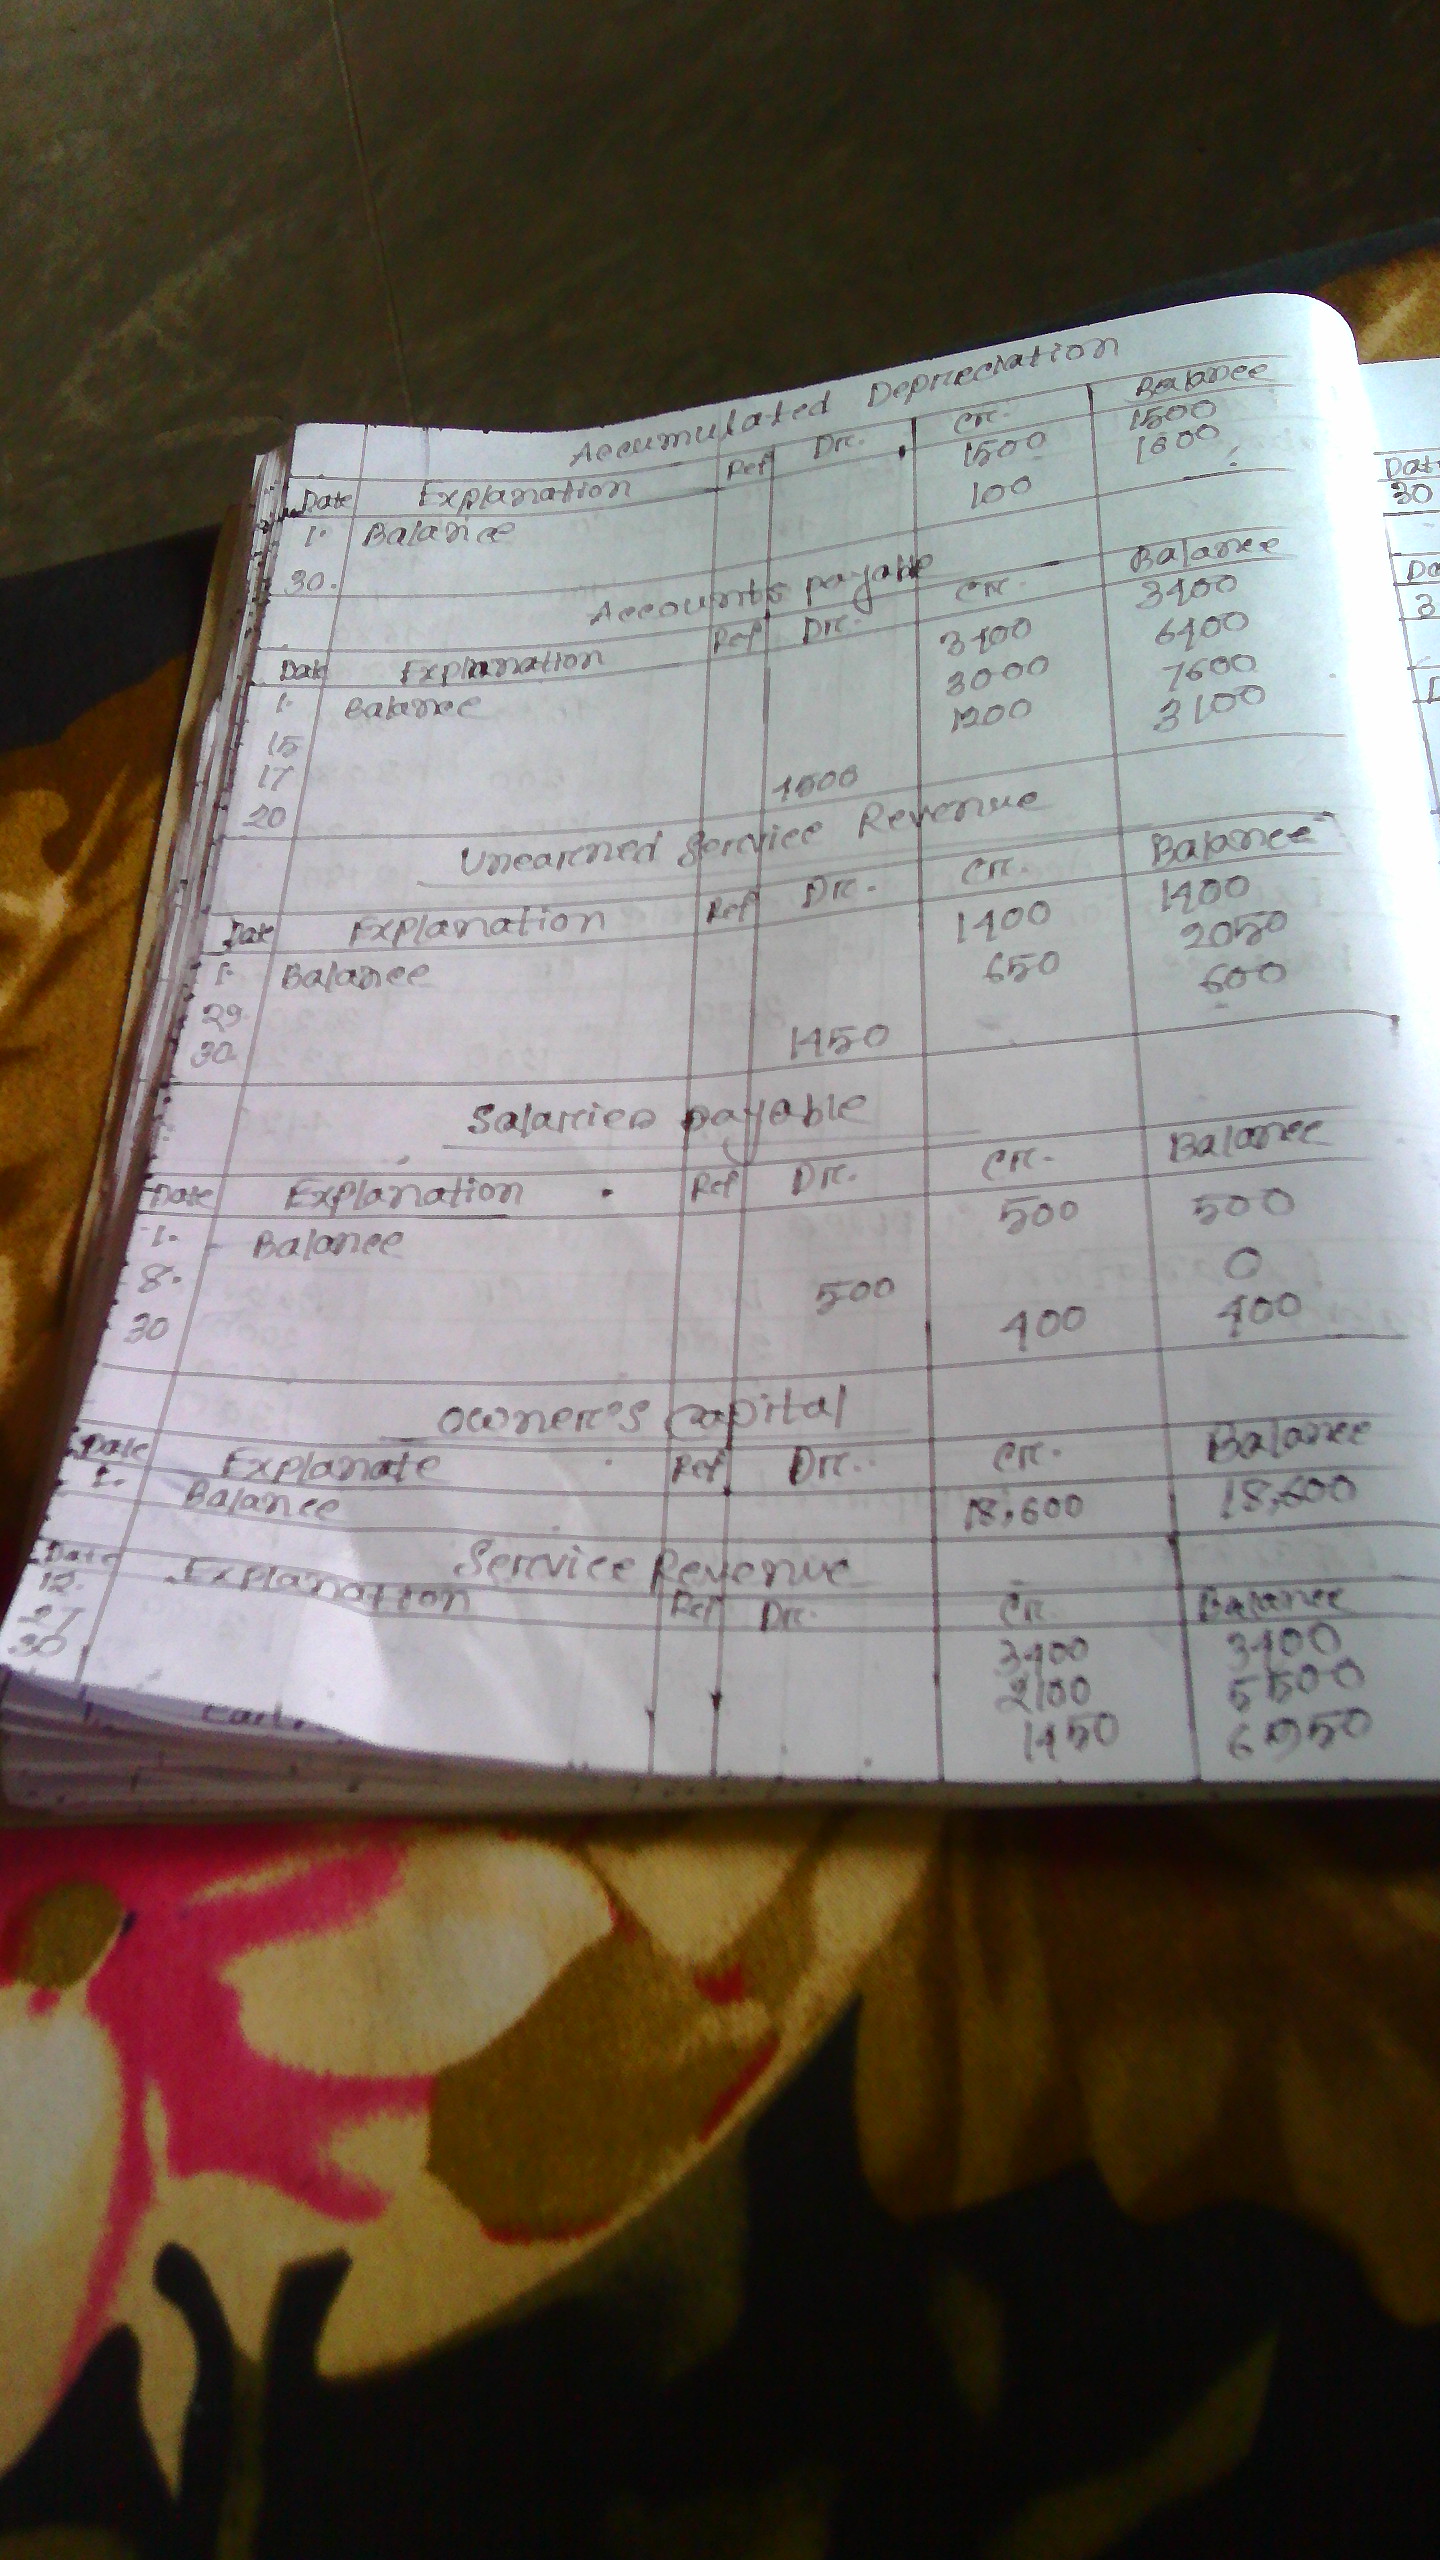 Accumulated Depreciation
Date Explanation Ref Dr. Cr. Balance
1. Balance 1500 1500
30. 100 1600
Accounts payable
Date Explanation Ref Dr. Cr. Balance
1. Balance 3400 3400
15 3000 6400
17 1200 7600
20 4500 3100
Unearned Service Revenue
Date Explanation Ref Dr. Cr. Balance
1. Balance 1400 1400
29. 650 2050
30. 1450 600
Salaries payable
Date Explanation Ref Dr. Cr. Balance
1. Balance 500 500
8. 500 0
30 400 400
Owner's capital
Date Explanate Ref Dr. Cr. Balance
1. Balance 18,600 18,600
Service Revenue
Date Explanation Ref Dr. Cr. Balance
12. 3400 3400
27 2100 5500
30 1450 6950
Dat
30
Da
3